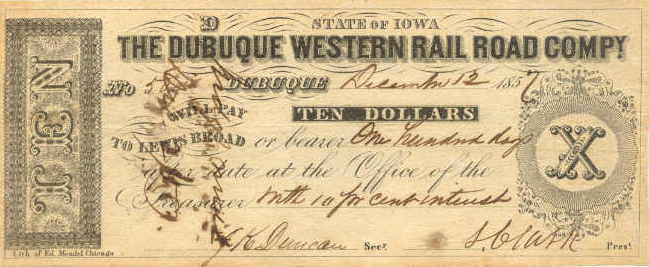 D
STATE OF IOWA
THE DUBUQUE WESTERN RAIL ROAD COMPY.
TEN
No 5
DUBUQUE December 12 1857
WILL PAY
TEN DOLLARS
TO LEWIS BROAD or bearer One hundred days
after date at the Office of the
Treasurer With 10 per cent interest
X
J. K. Duncan Secy.
S. Clark Prest.
Lith. of Ed. Mendel Chicago